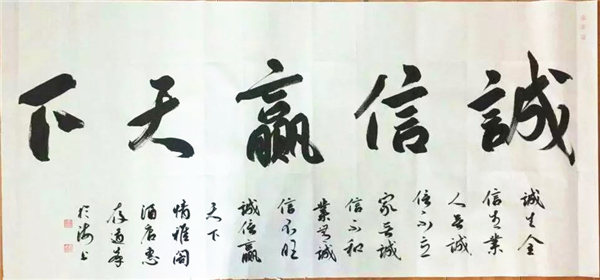 誠信贏天下
誠生金
信立業
人無誠
信不立
家無誠
信不和
業無誠
信不旺
誠信贏
天下
情雅閣
酒店惠
存
於海書